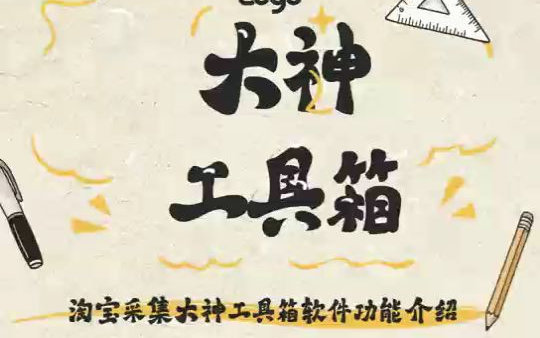 Logo
大神
工具箱
淘宝采集大神工具箱软件功能介绍